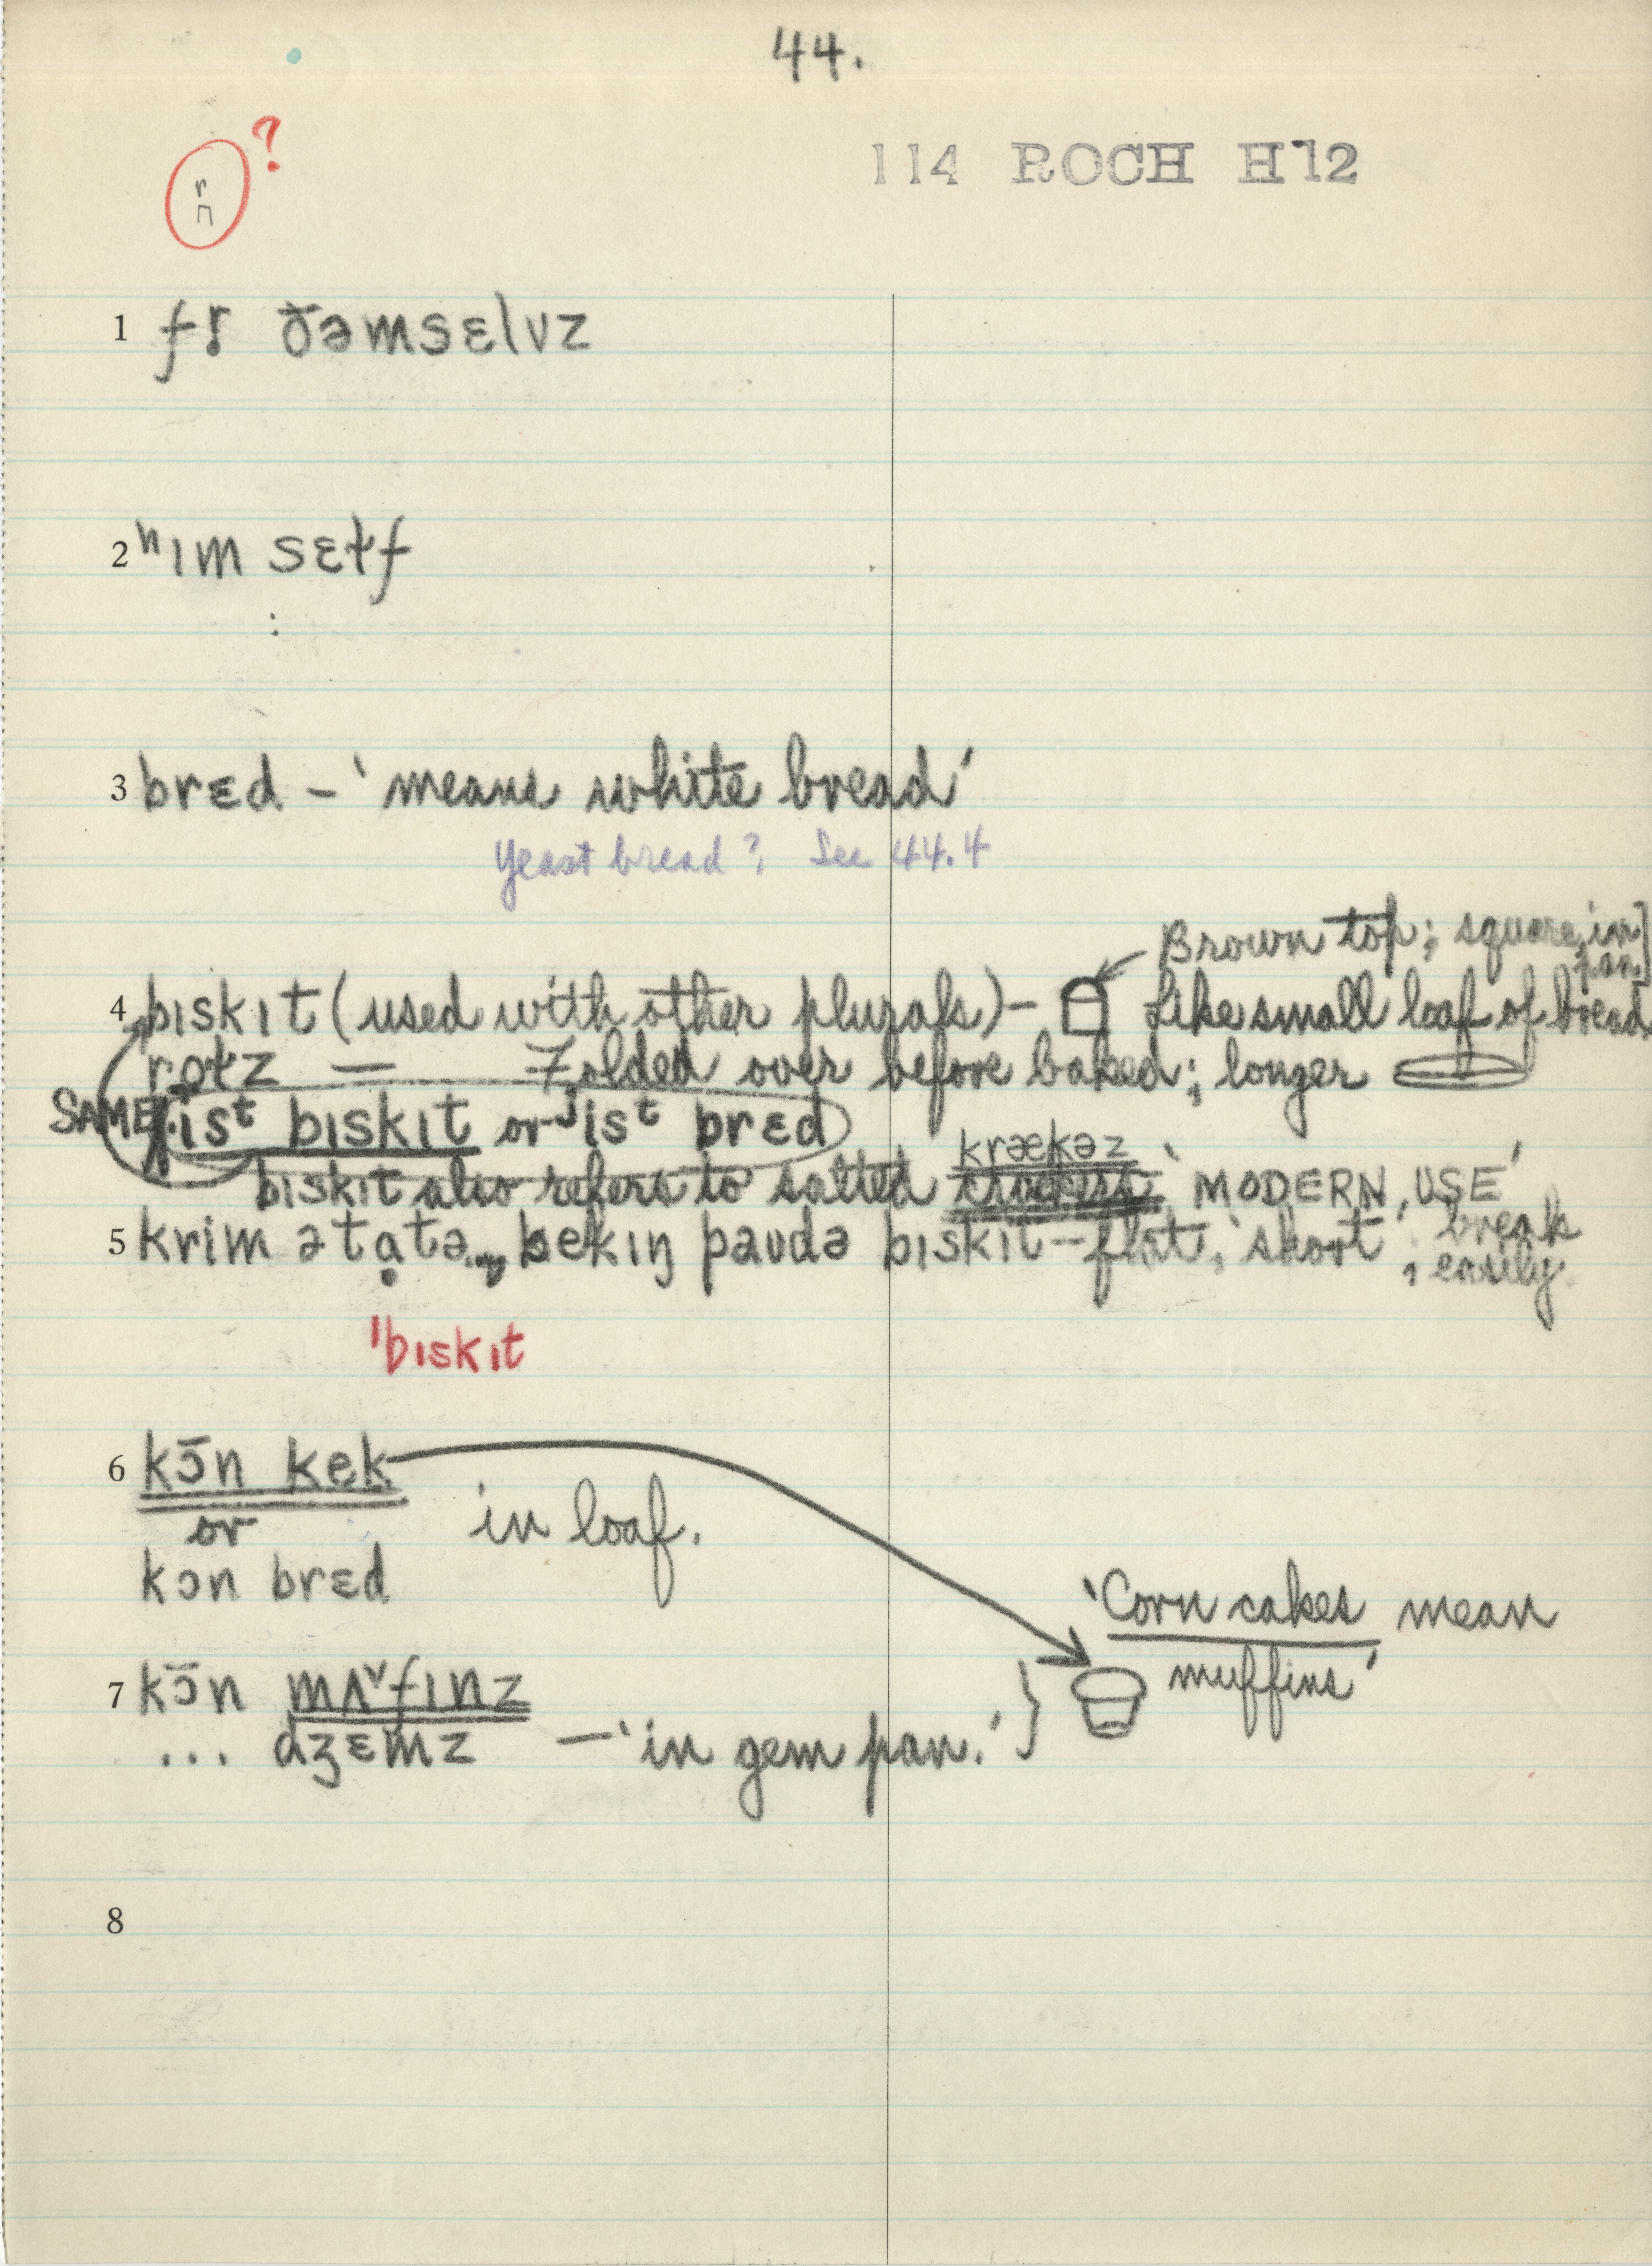 44.
114 ROCH H12
r
n ?
1 fr̩ ðəmsɛlvz
2 ʰɪm sɛɫf
3 brɛd – 'means white bread'
Yeast bread? See 44.4
Brown top; square, in pan.]
4 bɪskɪt (used with other plurals) – Like small loaf of bread
rɵɫz — Folded over before baked; longer
SAME. jisᵗ bɪskɪt or jisᵗ brɛd
krækəz
bɪskɪt also refers to salted crackers 'MODERN USE'
5 krim ətɑtə, bekɪŋ paʊdə bɪskɪt – flat, 'short'; break easily.
ˈbɪskɪt
6 kɔ̄n kek
or in loaf.
kɔn brɛd
'Corn cakes mean
muffins'
7 kɔ̄n mʌ˅fɪnz
... dʒɛmz — 'in gem pan.'
8